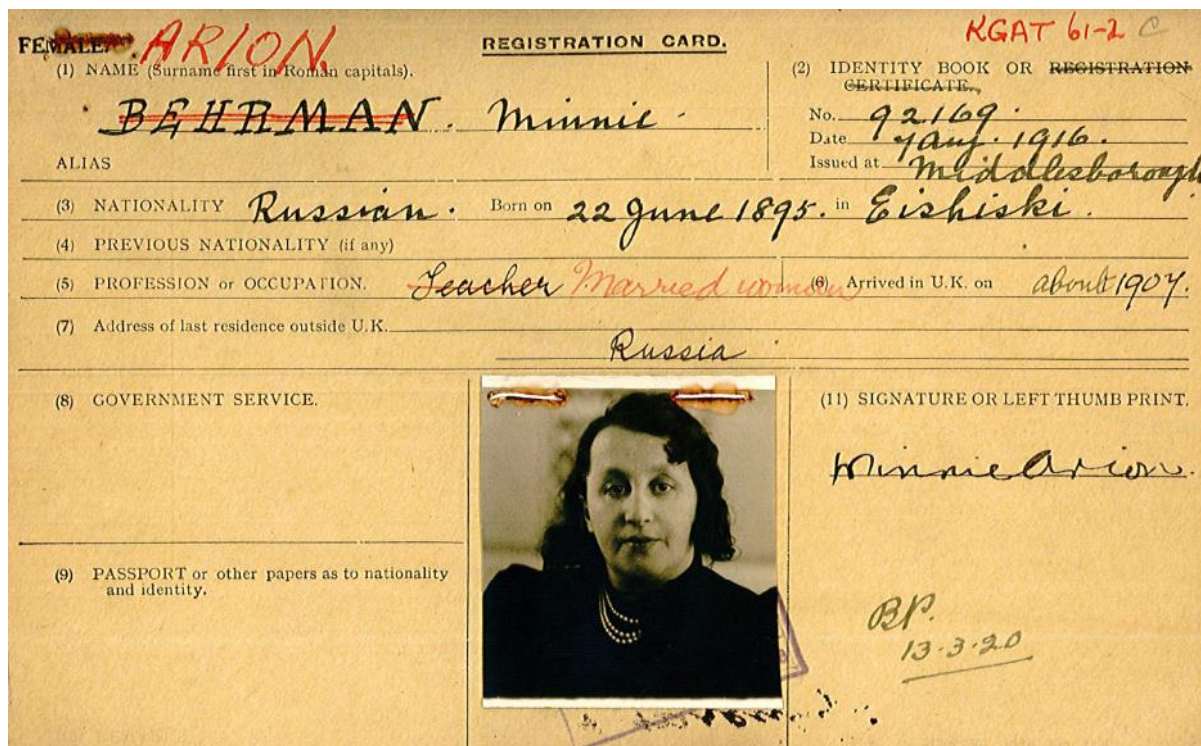 FEMALE. ARION.
REGISTRATION CARD.
KGAT 61-2 C
(1) NAME (Surname first in Roman capitals).
BEHRMAN. Minnie.
ALIAS
(2) IDENTITY BOOK OR REGISTRATION
CERTIFICATE.
No. 92169.
Date 7 Aug. 1916.
Issued at Middlesborough
(3) NATIONALITY Russian. Born on 22 June 1895. in Eishiski.
(4) PREVIOUS NATIONALITY (if any)
(5) PROFESSION or OCCUPATION. Teacher Married woman (6) Arrived in U.K. on about 1907.
(7) Address of last residence outside U.K.
Russia
(8) GOVERNMENT SERVICE.
(11) SIGNATURE OR LEFT THUMB PRINT.
Minnie Arion.
(9) PASSPORT or other papers as to nationality
and identity.
BP.
13.3.20